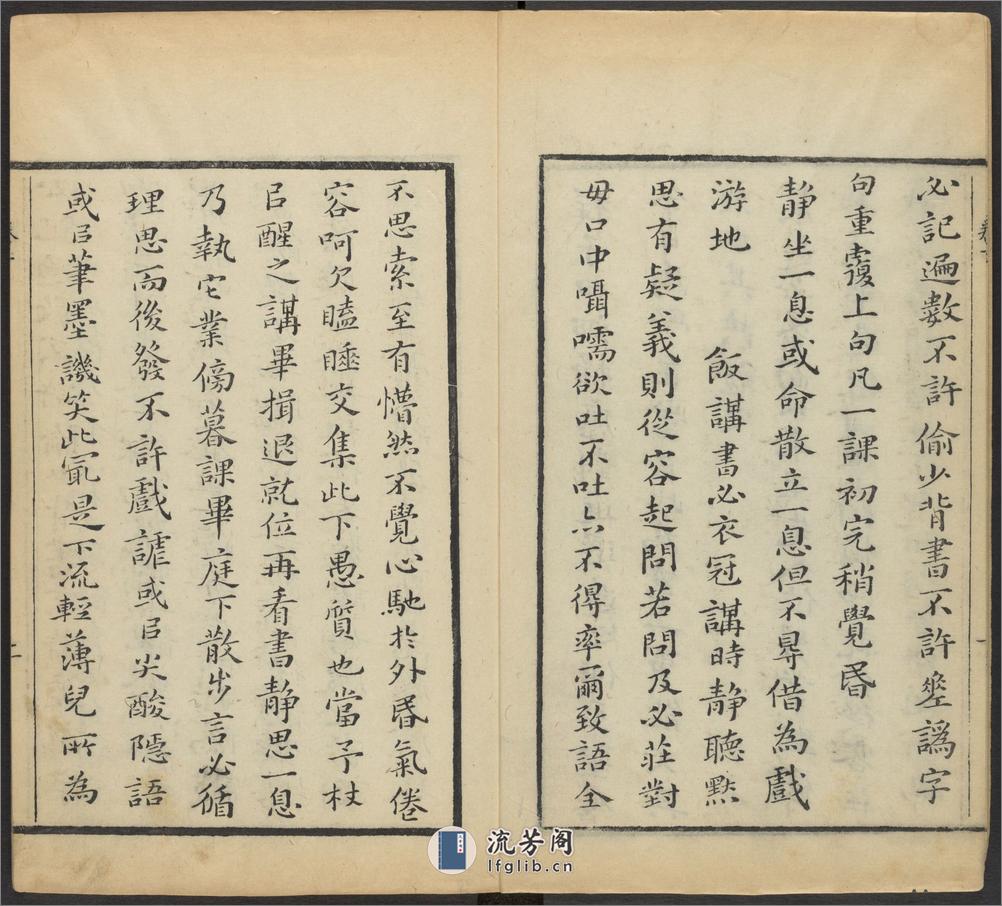 必記遍數不許偷少背書不許差譌字
句重覆上句凡一課初完稍覺昏
靜坐一息或命散立一息但不得借為戲
游地　飯講書必衣冠講時靜聽默
思有疑義則從容起問若問及必莊對
毋口中囁嚅欲吐不吐亦不得率爾致語全
不思索至有懵然不覺心馳於外昏氣倦
容呵欠瞌睡交集此下愚質也當予杖
㠯醒之講畢揖退就位再看書靜思一息
乃執它業傍暮課畢庭下散步言必循
理思而後發不許戲謔或㠯尖酸隱語
或㠯筆墨譏笑此冣是下流輕薄兒所為
二
流芳阁
lfglib.cn